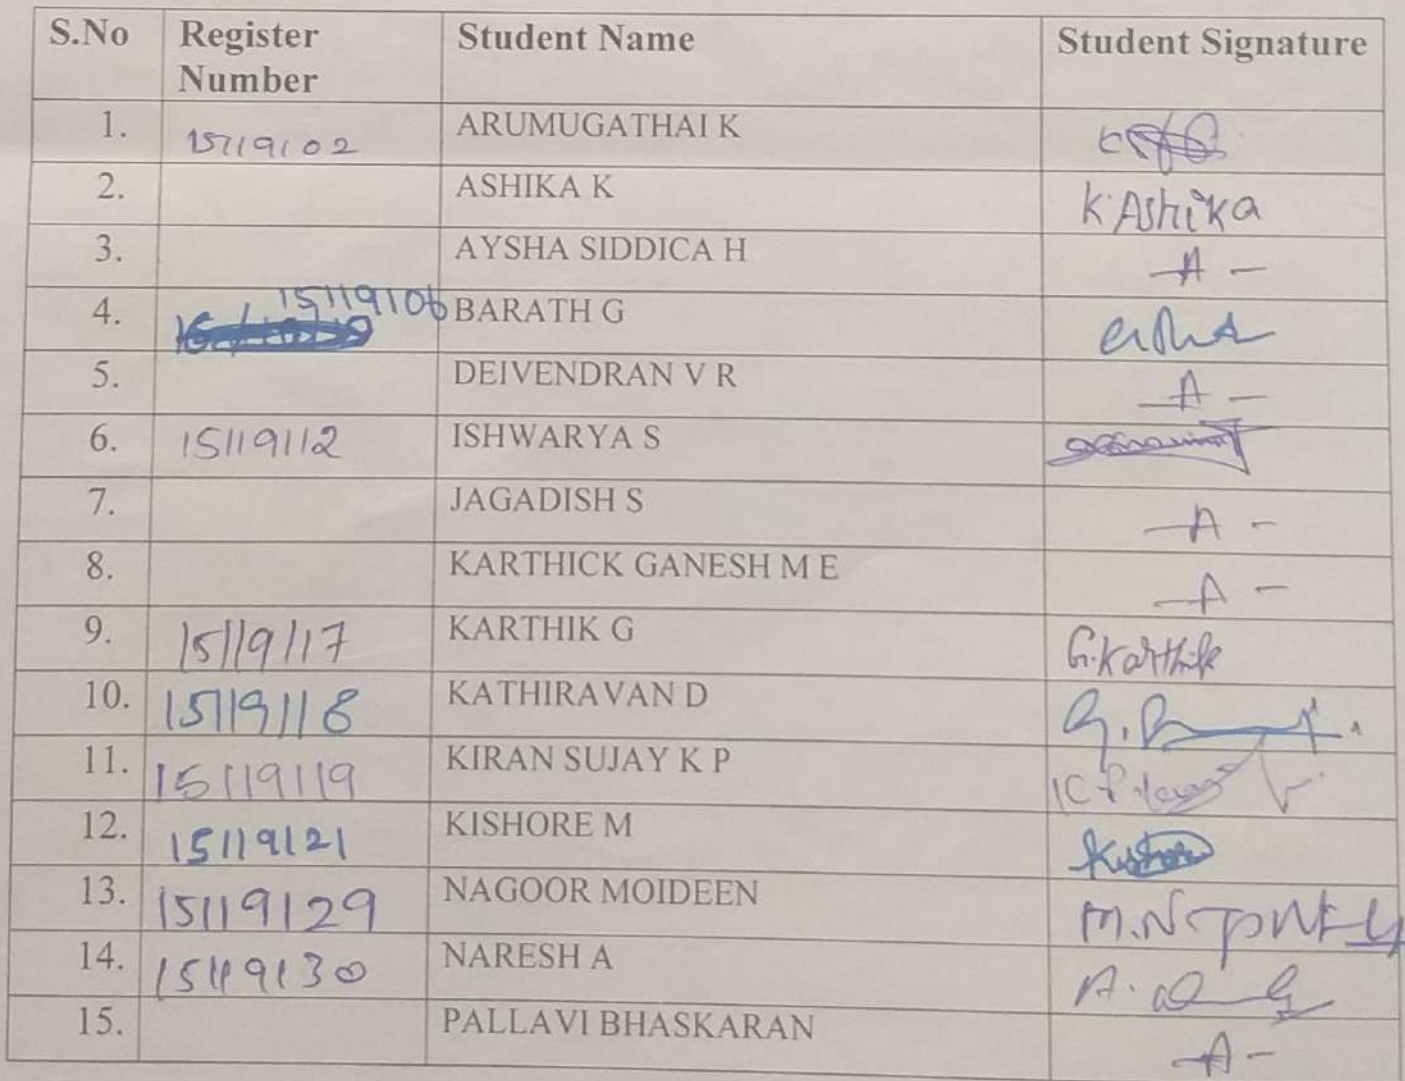 S.No Register Number Student Name Student Signature
1. 15119102 ARUMUGATHAI K
2. ASHIKA K K. Ashika
3. AYSHA SIDDICA H - A -
4. 15119106 BARATH G
5. DEIVENDRAN V R - A -
6. 15119112 ISHWARYA S
7. JAGADISH S - A -
8. KARTHICK GANESH M E - A -
9. 15119117 KARTHIK G G. Karthik
10. 15119118 KATHIRAVAN D
11. 15119119 KIRAN SUJAY K P
12. 15119121 KISHORE M
13. 15119129 NAGOOR MOIDEEN
14. 15119130 NARESH A
15. PALLAVI BHASKARAN - A -